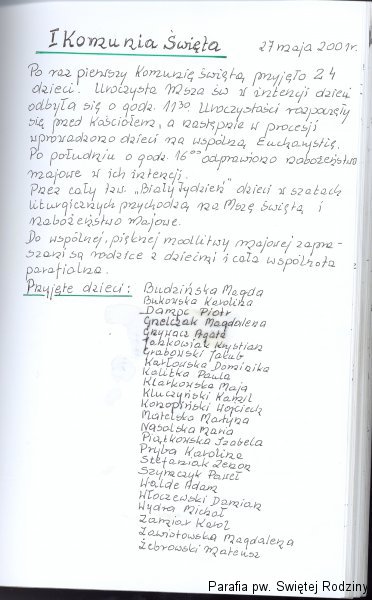 I Komunia Święta 27 maja 2001r.
Po raz pierwszy Komunię Świętą przyjęło 24
dzieci. Uroczysta Msza św w intencji dzieci
odbyła się o godz. 11³⁰. Uroczystości rozpoczęły
się przed Kościołem, a następnie w procesji
wprowadzono dzieci na wspólną Eucharystię.
Po południu o godz. 16⁰⁰ odprawiono nabożeństwo
majowe w ich intencji.
Przez cały tzw. „Biały Tydzień" dzieci w szatach
liturgicznych przychodzą na Mszę Świętą i
nabożeństwo majowe.
Do wspólnej, pięknej modlitwy majowej zapra-
szani są rodzice z dziećmi i cała wspólnota
parafialna.
Przyjęte dzieci: Budzińska Magda
Bukowska Karolina
Dampc Piotr
Gnelczak Magdalena
Grywacz Agata
Jabkowiak Krystian
Grabowski Jakub
Karłowska Dominika
Kalitka Paula
Klarkowska Maja
Kluczyński Kamil
Konopiński Wojciech
Matelska Martyna
Nasolska Maria
Piątkowska Izabela
Pryba Karolina
Stefaniak Zenon
Szymczyk Paweł
Walde Adam
Włoczewski Damian
Wydra Michał
Zamiar Karol
Zawistowska Magdalena
Żebrowski Mateusz
Parafia pw. Świętej Rodziny